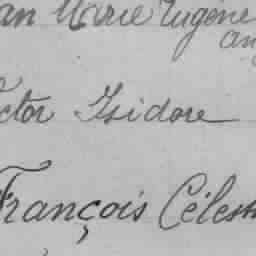 an Marie Eugène
an
ctor Isidore
François Célest